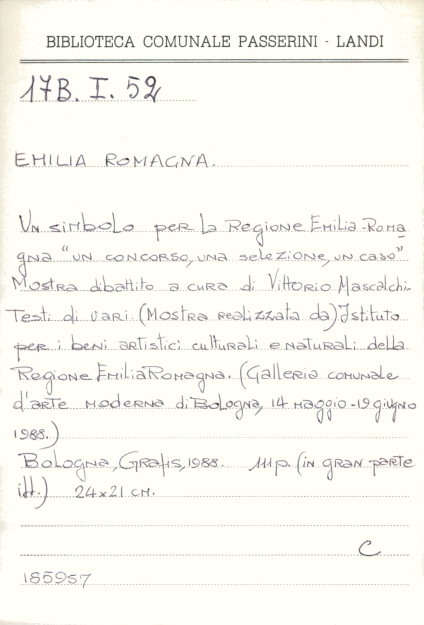 BIBLIOTECA COMUNALE PASSERINI - LANDI
17B. I. 52
EMILIA ROMAGNA.
Un simbolo per la Regione Emilia-Roma
gna "un concorso, una selezione, un caso"
Mostra dibattito a cura di Vittorio Mascalchi-
Testi di vari. (Mostra realizzata da) Istituto
per i beni artistici culturali e naturali della
Regione Emilia Romagna. (Galleria comunale
d'arte moderna di Bologna, 14 maggio-19 giugno
1988.)
Bologna, Grafis, 1988. 111p. (in gran parte
ill.) 24x21 cm.
C
185957